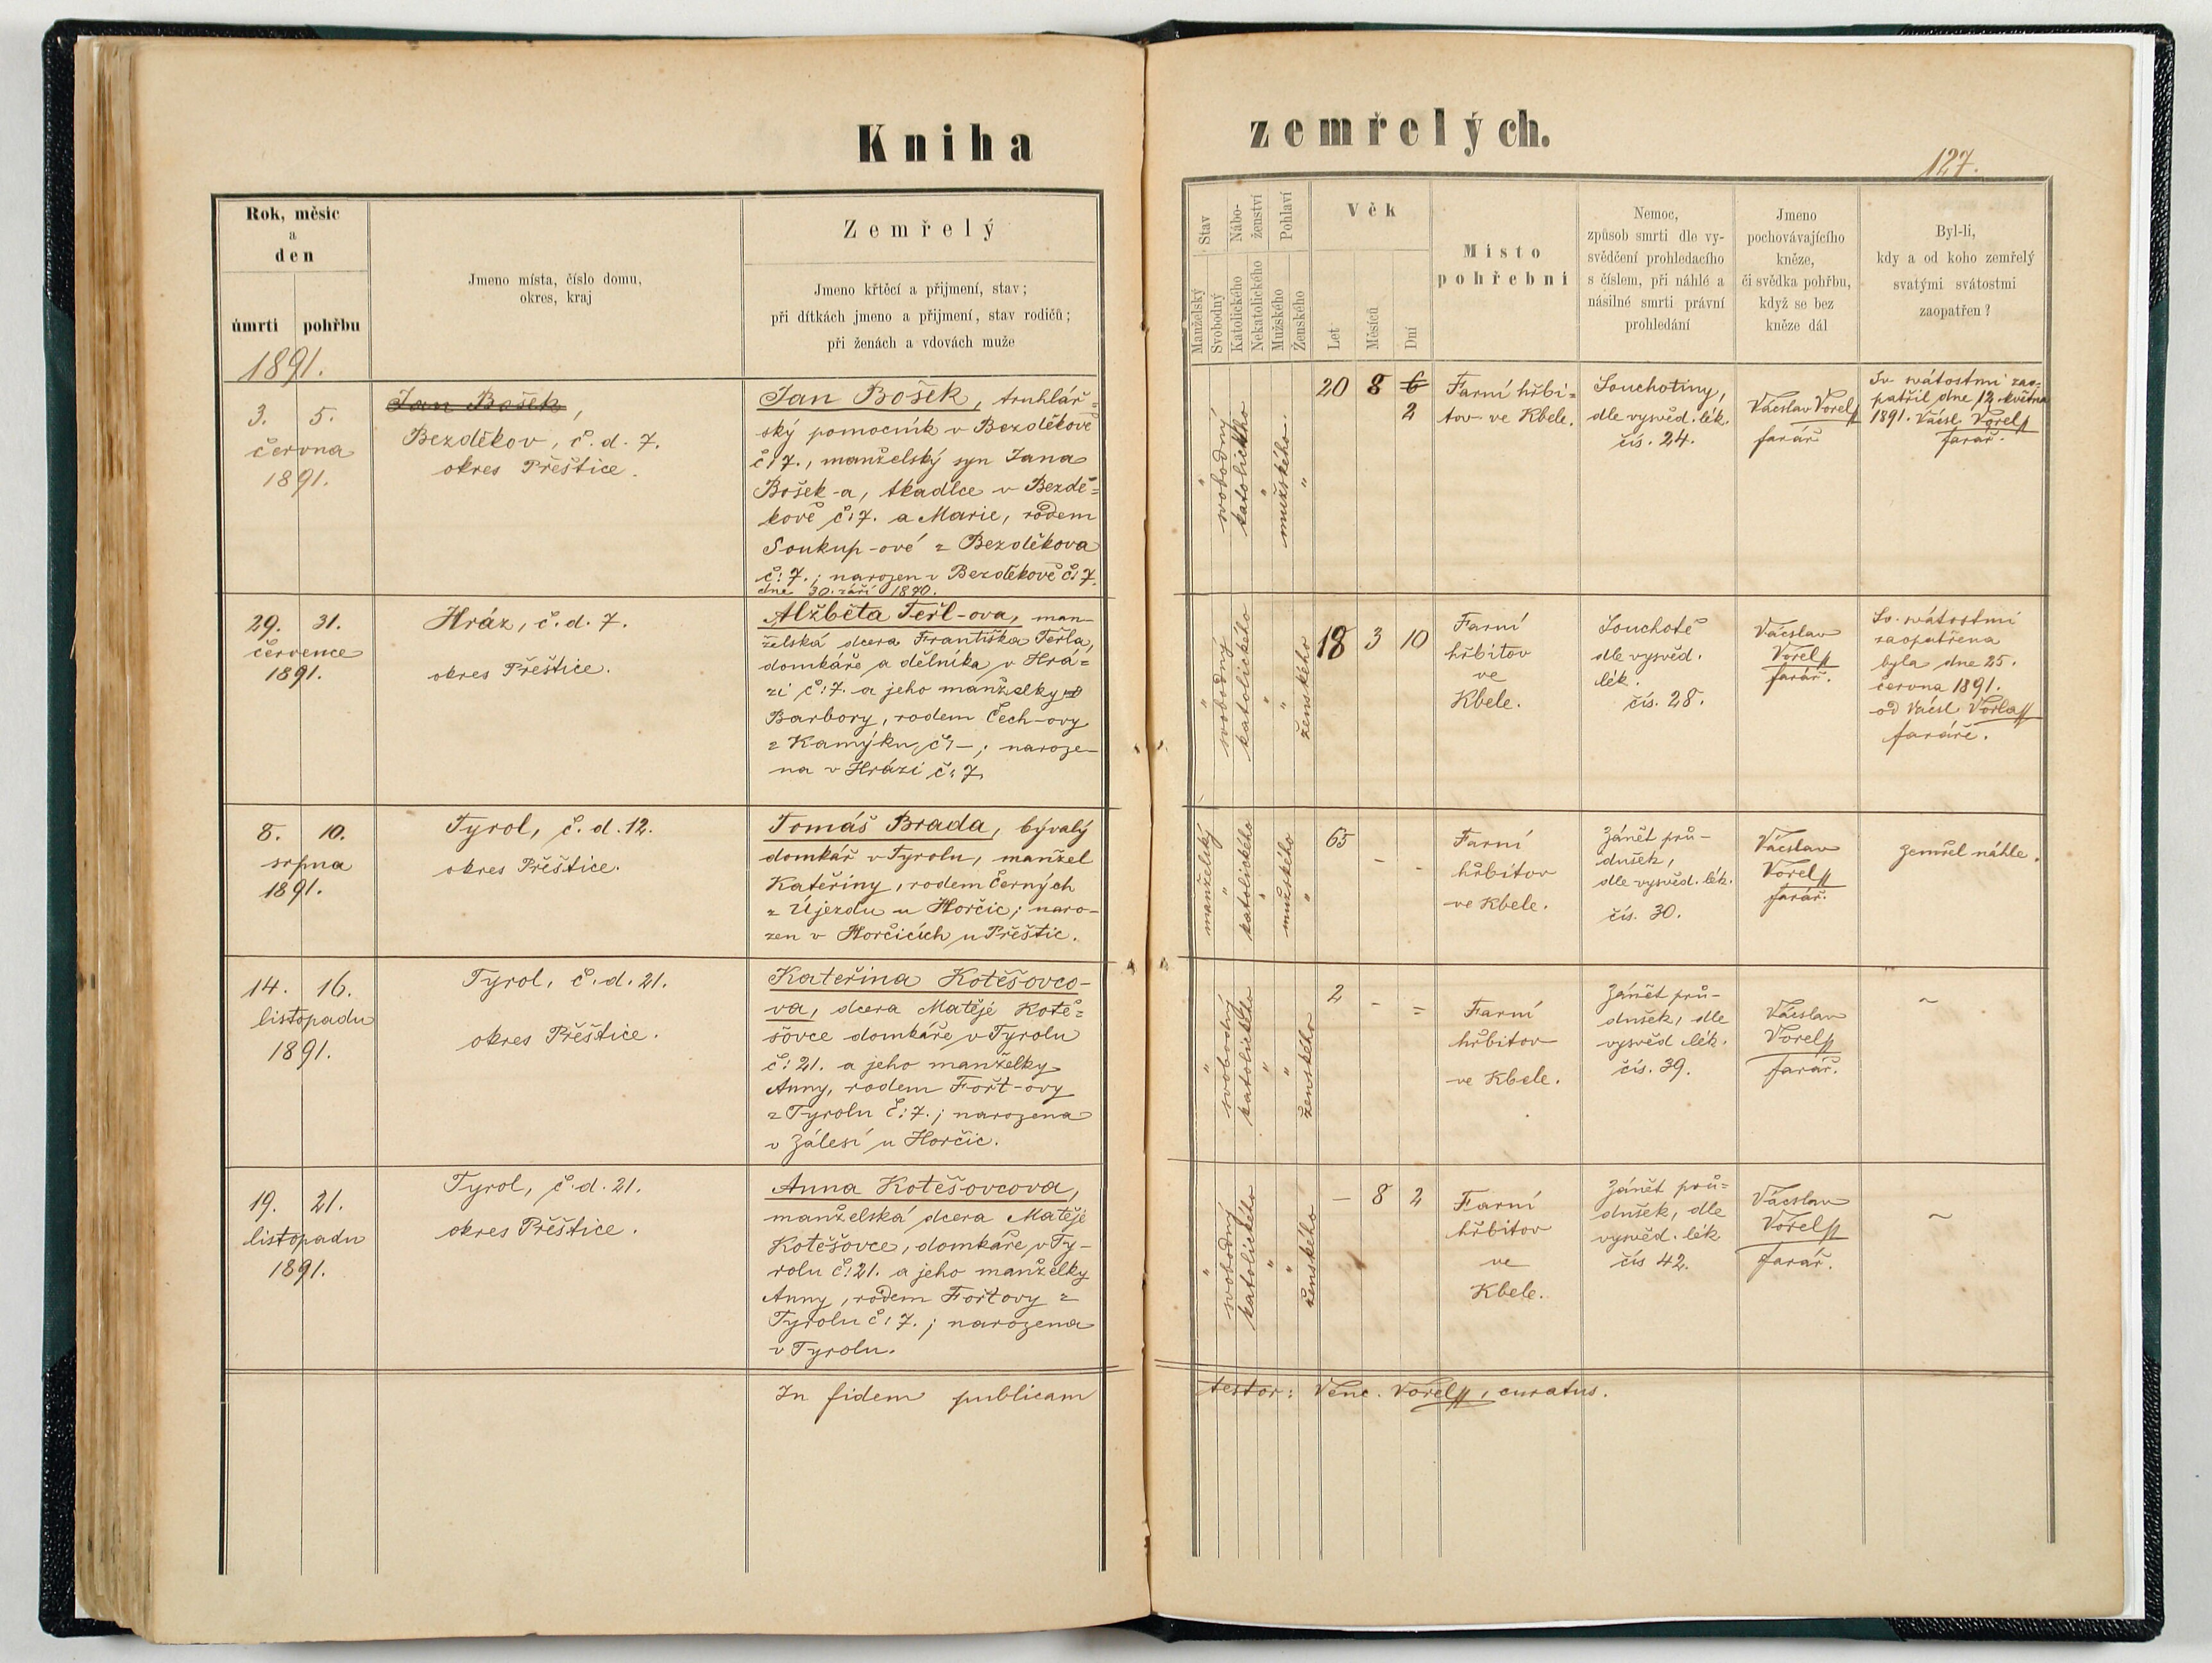 Kniha
zemřelých.
127.
Rok, měsíc
a
den
úmrtí
pohřbu
Jmeno místa, číslo domu,
okres, kraj
Zemřelý
Jmeno křtěcí a přijmení, stav;
při dítkách jmeno a přijmení, stav rodičů;
při ženách a vdovách muže
Stav
Manželský
Svobodný
Nábo-
ženství
Katolického
Nekatolického
Pohlaví
Mužského
Ženského
Věk
Let
Měsíců
Dní
Místo
pohřební
Nemoc,
způsob smrti dle vy-
svědčení prohledacího
s číslem, při náhlé a
násilné smrti právní
prohledání
Jmeno
pochovávajícího
kněze,
či svědka pohřbu,
když se bez
kněze dál
Byl-li,
kdy a od koho zemřelý
svatými svátostmi
zaopatřen?
1891.
3. 5.
června
1891.
Jan Bošek,
Bezděkov, č. d. 7.
okres Přeštice.
Jan Bošek, truhlář-
ský pomocník v Bezděkově
č: 7., manželský syn Jana
Bošek-a, tkadlce v Bezdě=
kově č: 7. a Marie, rodem
Soukup-ové z Bezděkova
č: 7.; narozen v Bezděkově č: 7.
dne 30. září 1870.
"
svobodný
katolického
"
mužského.
"
20 8 6
2
Farní hřbi=
tov ve Kbele.
Souchotiny,
dle vysvěd. lék.
čís. 24.
Vácslav Vorel
farář
Sv svátostmi zao=
patřil dne 12. května
1891. Václ. Vorel
farář.
29. 31.
července
1891.
Hráz, č. d. 7.
okres Přeštice.
Alžběta Teřl-ova, man-
želská dcera Františka Teřla,
domkáře a dělníka v Hrá=
zi č: 7. a jeho manželky
Barbory, rodem Čech-ovy
z Kamýku, č: —; naroze-
na v Hrázi č: 7.
"
svobodný
katolického
"
"
ženského
18 3 10
Farní
hřbitov
ve
Kbele.
Souchotě
dle vysvěd.
lék.
čís. 28.
Vácslav
Vorel
farář.
Sv. svátostmi
zaopatřena
byla dne 25.
června 1891.
od Václ. Vorla
faráře.
8. 10.
srpna
1891.
Tyrol, č. d. 12.
okres Přeštice.
Tomáš Brada, bývalý
domkář v Tyrolu, manžel
Kateřiny, rodem Černých
z Újezdu u Horčic; naro-
zen v Horčicích u Přeštic.
manželský
"
katolického
"
mužského
"
65 - -
Farní
hřbitov
ve Kbele.
Zánět prů-
dušek,
dle vysvěd. lék.
čís. 30.
Vácslav
Vorel
farář.
Zemřel náhle.
14. 16.
listopadu
1891.
Tyrol, č. d. 21.
okres Přeštice.
Kateřina Kotěšovco-
va, dcera Matěje Kotě=
šovce domkáře v Tyrolu
č: 21. a jeho manželky
Anny, rodem Fořt-ovy
z Tyrolu č: 7.; narozena
v Zálesí u Horčic.
"
svobodný
katolického
"
"
ženského
2 - =
Farní
hřbitov
ve Kbele.
Zánět prů-
dušek, dle
vysvěd lék.
čís. 39.
Vácslav
Vorel
farář.
~
19. 21.
listopadu
1891.
Tyrol, č. d. 21.
okres Přeštice.
Anna Kotěšovcova,
manželská dcera Matěje
Kotěšovce, domkáře v Ty-
rolu č: 21. a jeho manželky
Anny, rodem Fořtovy z
Tyrolu č: 7.; narozena
v Tyrolu.
"
svobodný
katolického
"
"
ženského
— 8 2
Farní
hřbitov
ve
Kbele.
Zánět prů=
dušek, dle
vysvěd. lék
čís 42.
Vácslav
Vorel
farář.
~
In fidem publicam
testor: Venc. Vorel, curatus.